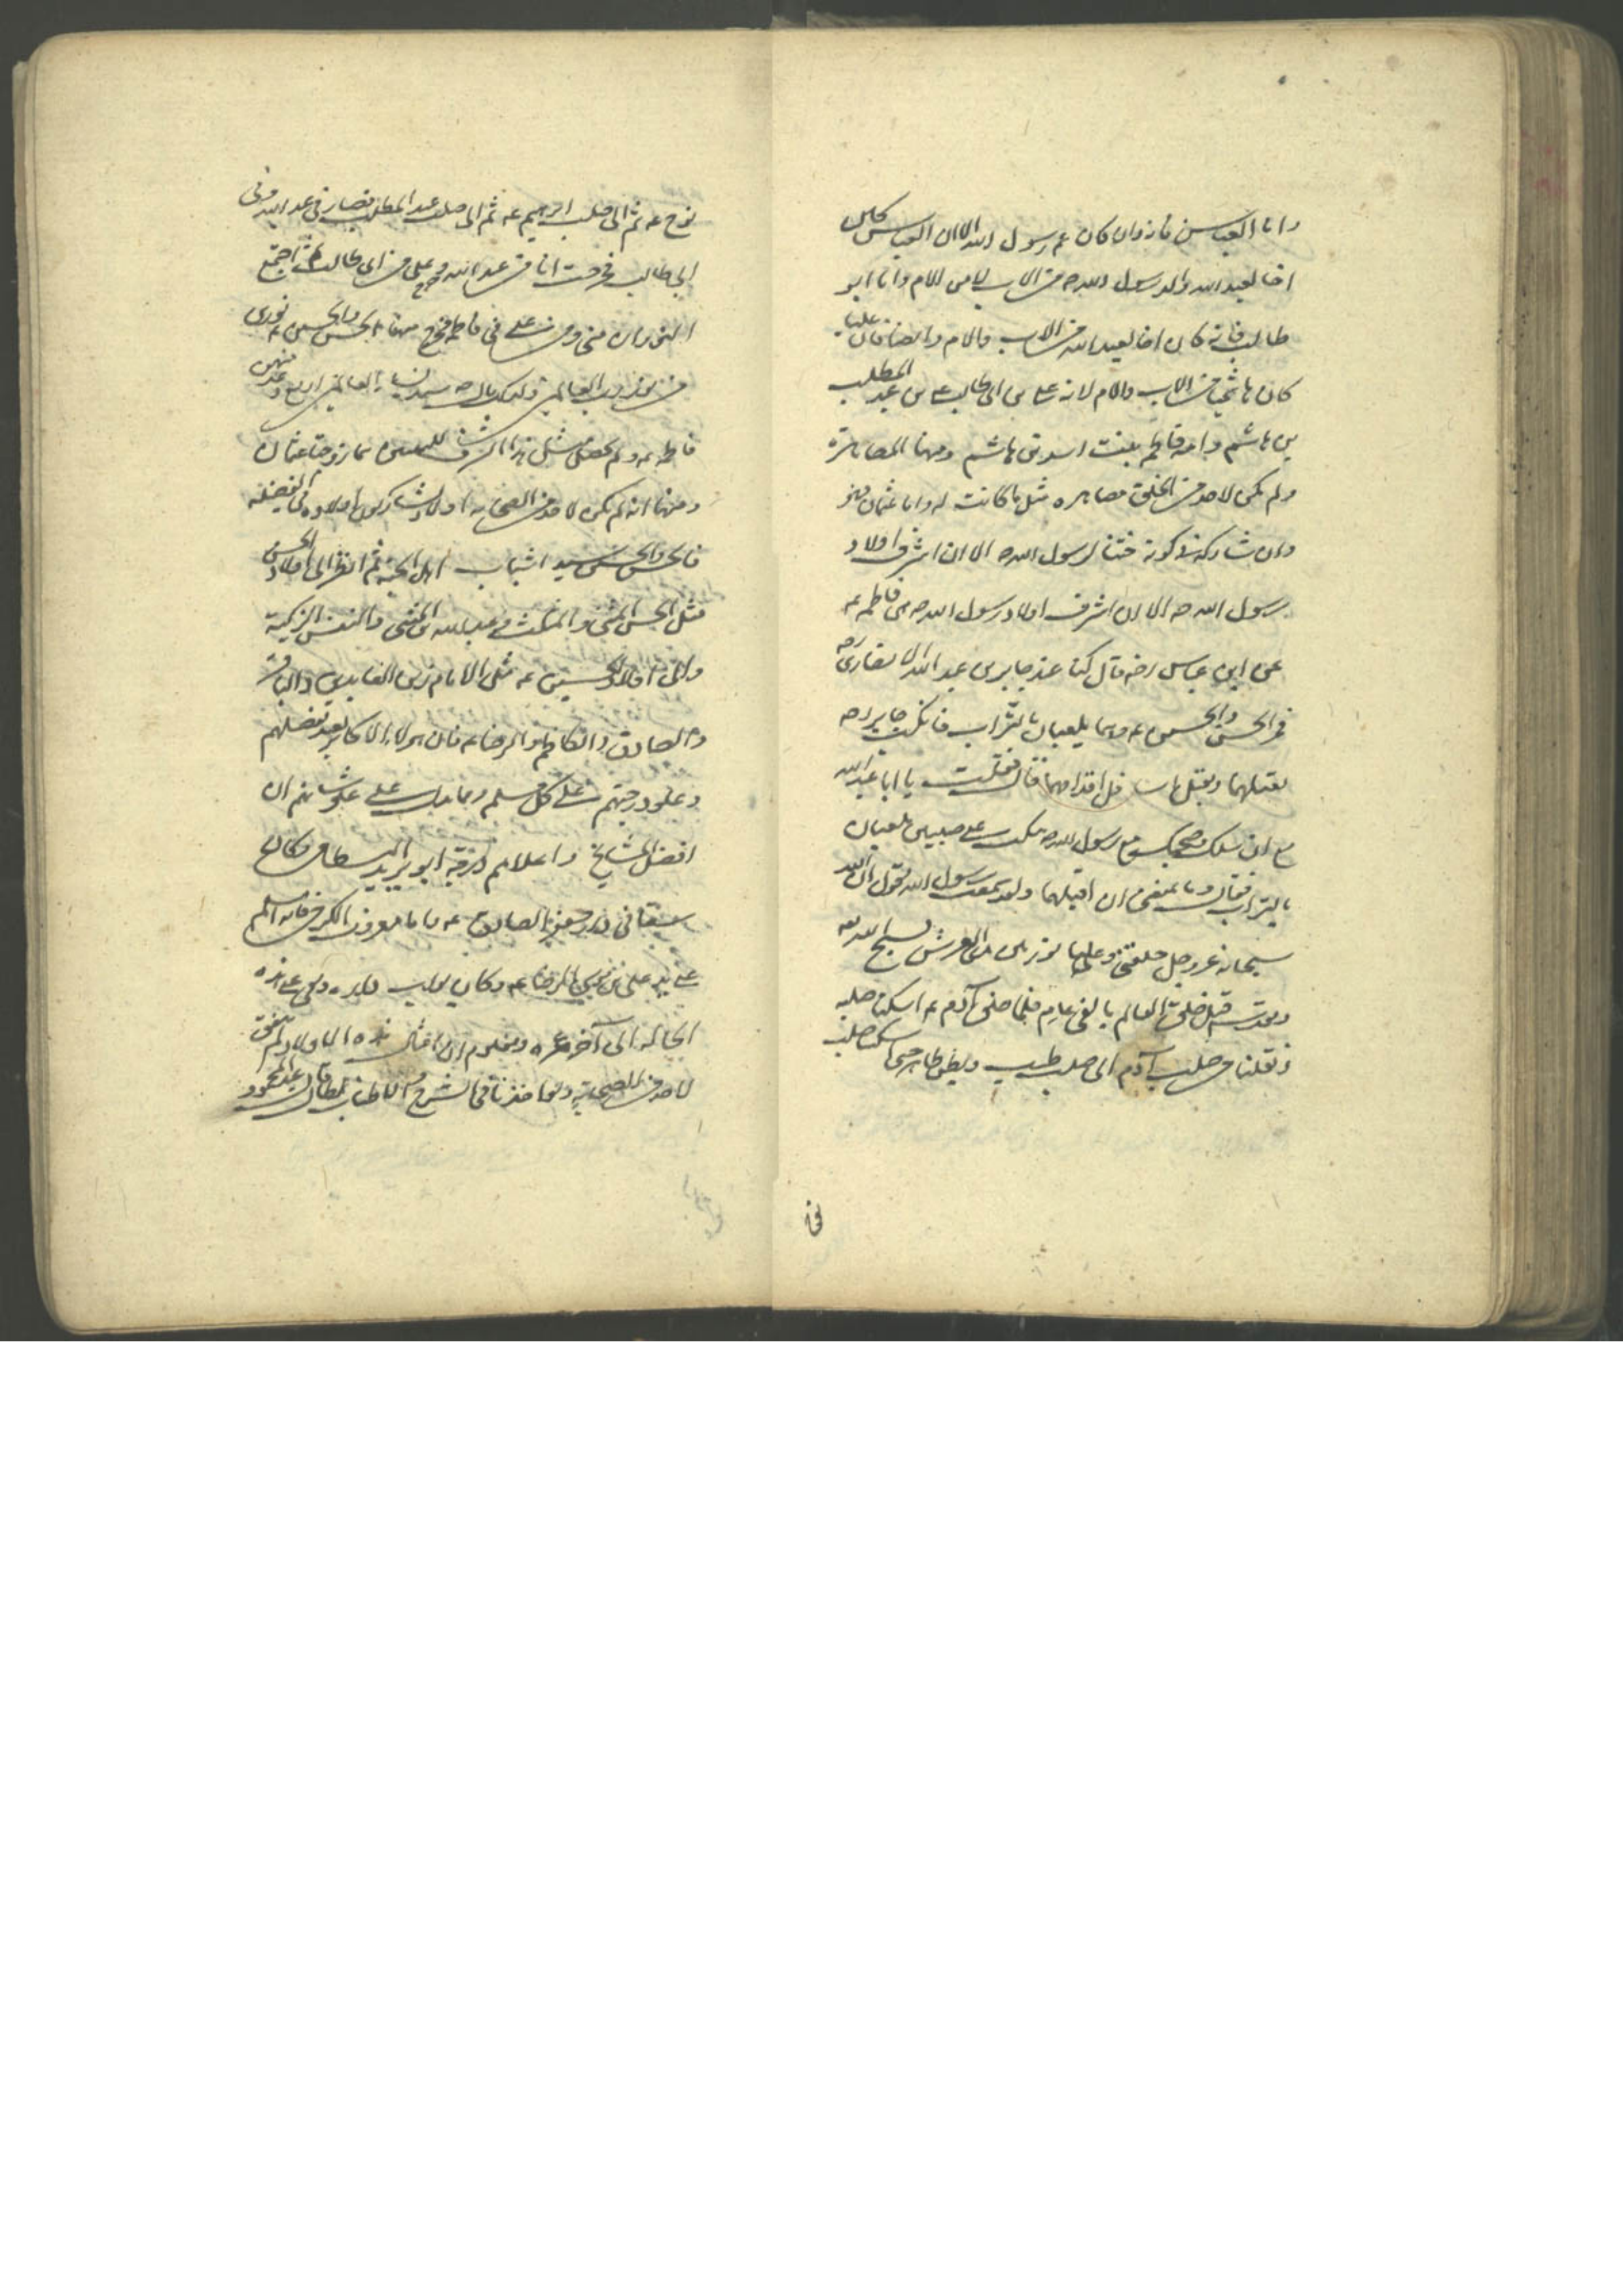 واما العباس فانه وان كان عم رسول الله الا ان العباس كان
اخا لعبد الله والد رسول الله ص من الاب لا من الام واما ابو
طالب فانه كان اخا لعبد الله من الاب والام وايضا فان عليا
كان هاشميا من الاب والام لانه علي بن ابي طالب بن عبد المطلب
بن هاشم وامه فاطمة بنت اسد بن هاشم ومنها المصاهرة
ولم يكن لاحد من الخلق مصاهرة مثل ما كانت له واما عثمان فهو
وان شاركه في كونه ختنا لرسول الله ص الا ان اشرف اولاد
رسول الله ص الا ان اشرف اولاد رسول الله ص هي فاطمة ع
عن ابن عباس رضه قال كنا عند جابر بن عبد الله الانصاري ره
فمر الحسن والحسين ع وهما يلعبان بالتراب فانكب جابر ره
يقبلهما ويقبل اقدامهما قال فقلت يا ابا عبد الله
مع ان سنك وصحبتك مع رسول الله ص تنكب على صبيين يلعبان
بالتراب فقال وما يمنعني ان اقبلهما ولقد سمعت رسول الله يقول ان الله
سبحانه عز وجل خلقني وعليا نورين بين يدي العرش نسبح الله
ونقدسه قبل خلق العالم بالفي عام فلما خلق آدم ع اسكنا صلبه
ثم نقلنا من صلب آدم الى صلب طيب وبطن طاهر حتى اسكنا صلب
نوح
نوح ع ثم الى صلب ابرهيم ع ثم الى صلب عبد المطلب فصار في عبد الله وفي
ابي طالب فخرجت انا من عبد الله وخرج علي من ابي طالب ثم اجتمع
النوران مني ومن علي في فاطمة فخرج منها الحسن والحسين ع نوري
من نور رب العالمين سيدة نساء العالمين اربع وعد منهن
فاطمة ع ولم يحصل مثل هذا الشرف للبنتين هما زوجتا عثمان
ومنها انه لم يكن لاحد من الصحابة اولاد يشاركون اولاده في الفضيلة
فالحسن والحسين سيدا شباب اهل الجنة ثم انظر الى اولاد الحسن
مثل الحسن المثنى والمثلث وعبد الله بن المثنى والنفس الزكية
والى اولاد الحسين ع مثل الامام زين العابدين والباقر
والصادق والكاظم والرضا ع فان هؤلاء الاكابر يقر بفضلهم
وعلو درجتهم على كل مسلم ومما يدل على علو شانهم ان
افضل المشايخ واعلاهم درجة ابو يزيد البسطامي وكان
سقاء في دار جعفر الصادق ع واما معروف الكرخي فانه اسلم
على يد علي بن موسى الرضا ع وكان بواب داره وبقي على هذه
الحالة الى آخر عمره ومعلوم ان امثال هذه الاولاد لم يتفق
لاحد من الصحابة ولو اخذنا في الشرح والاطناب لطال